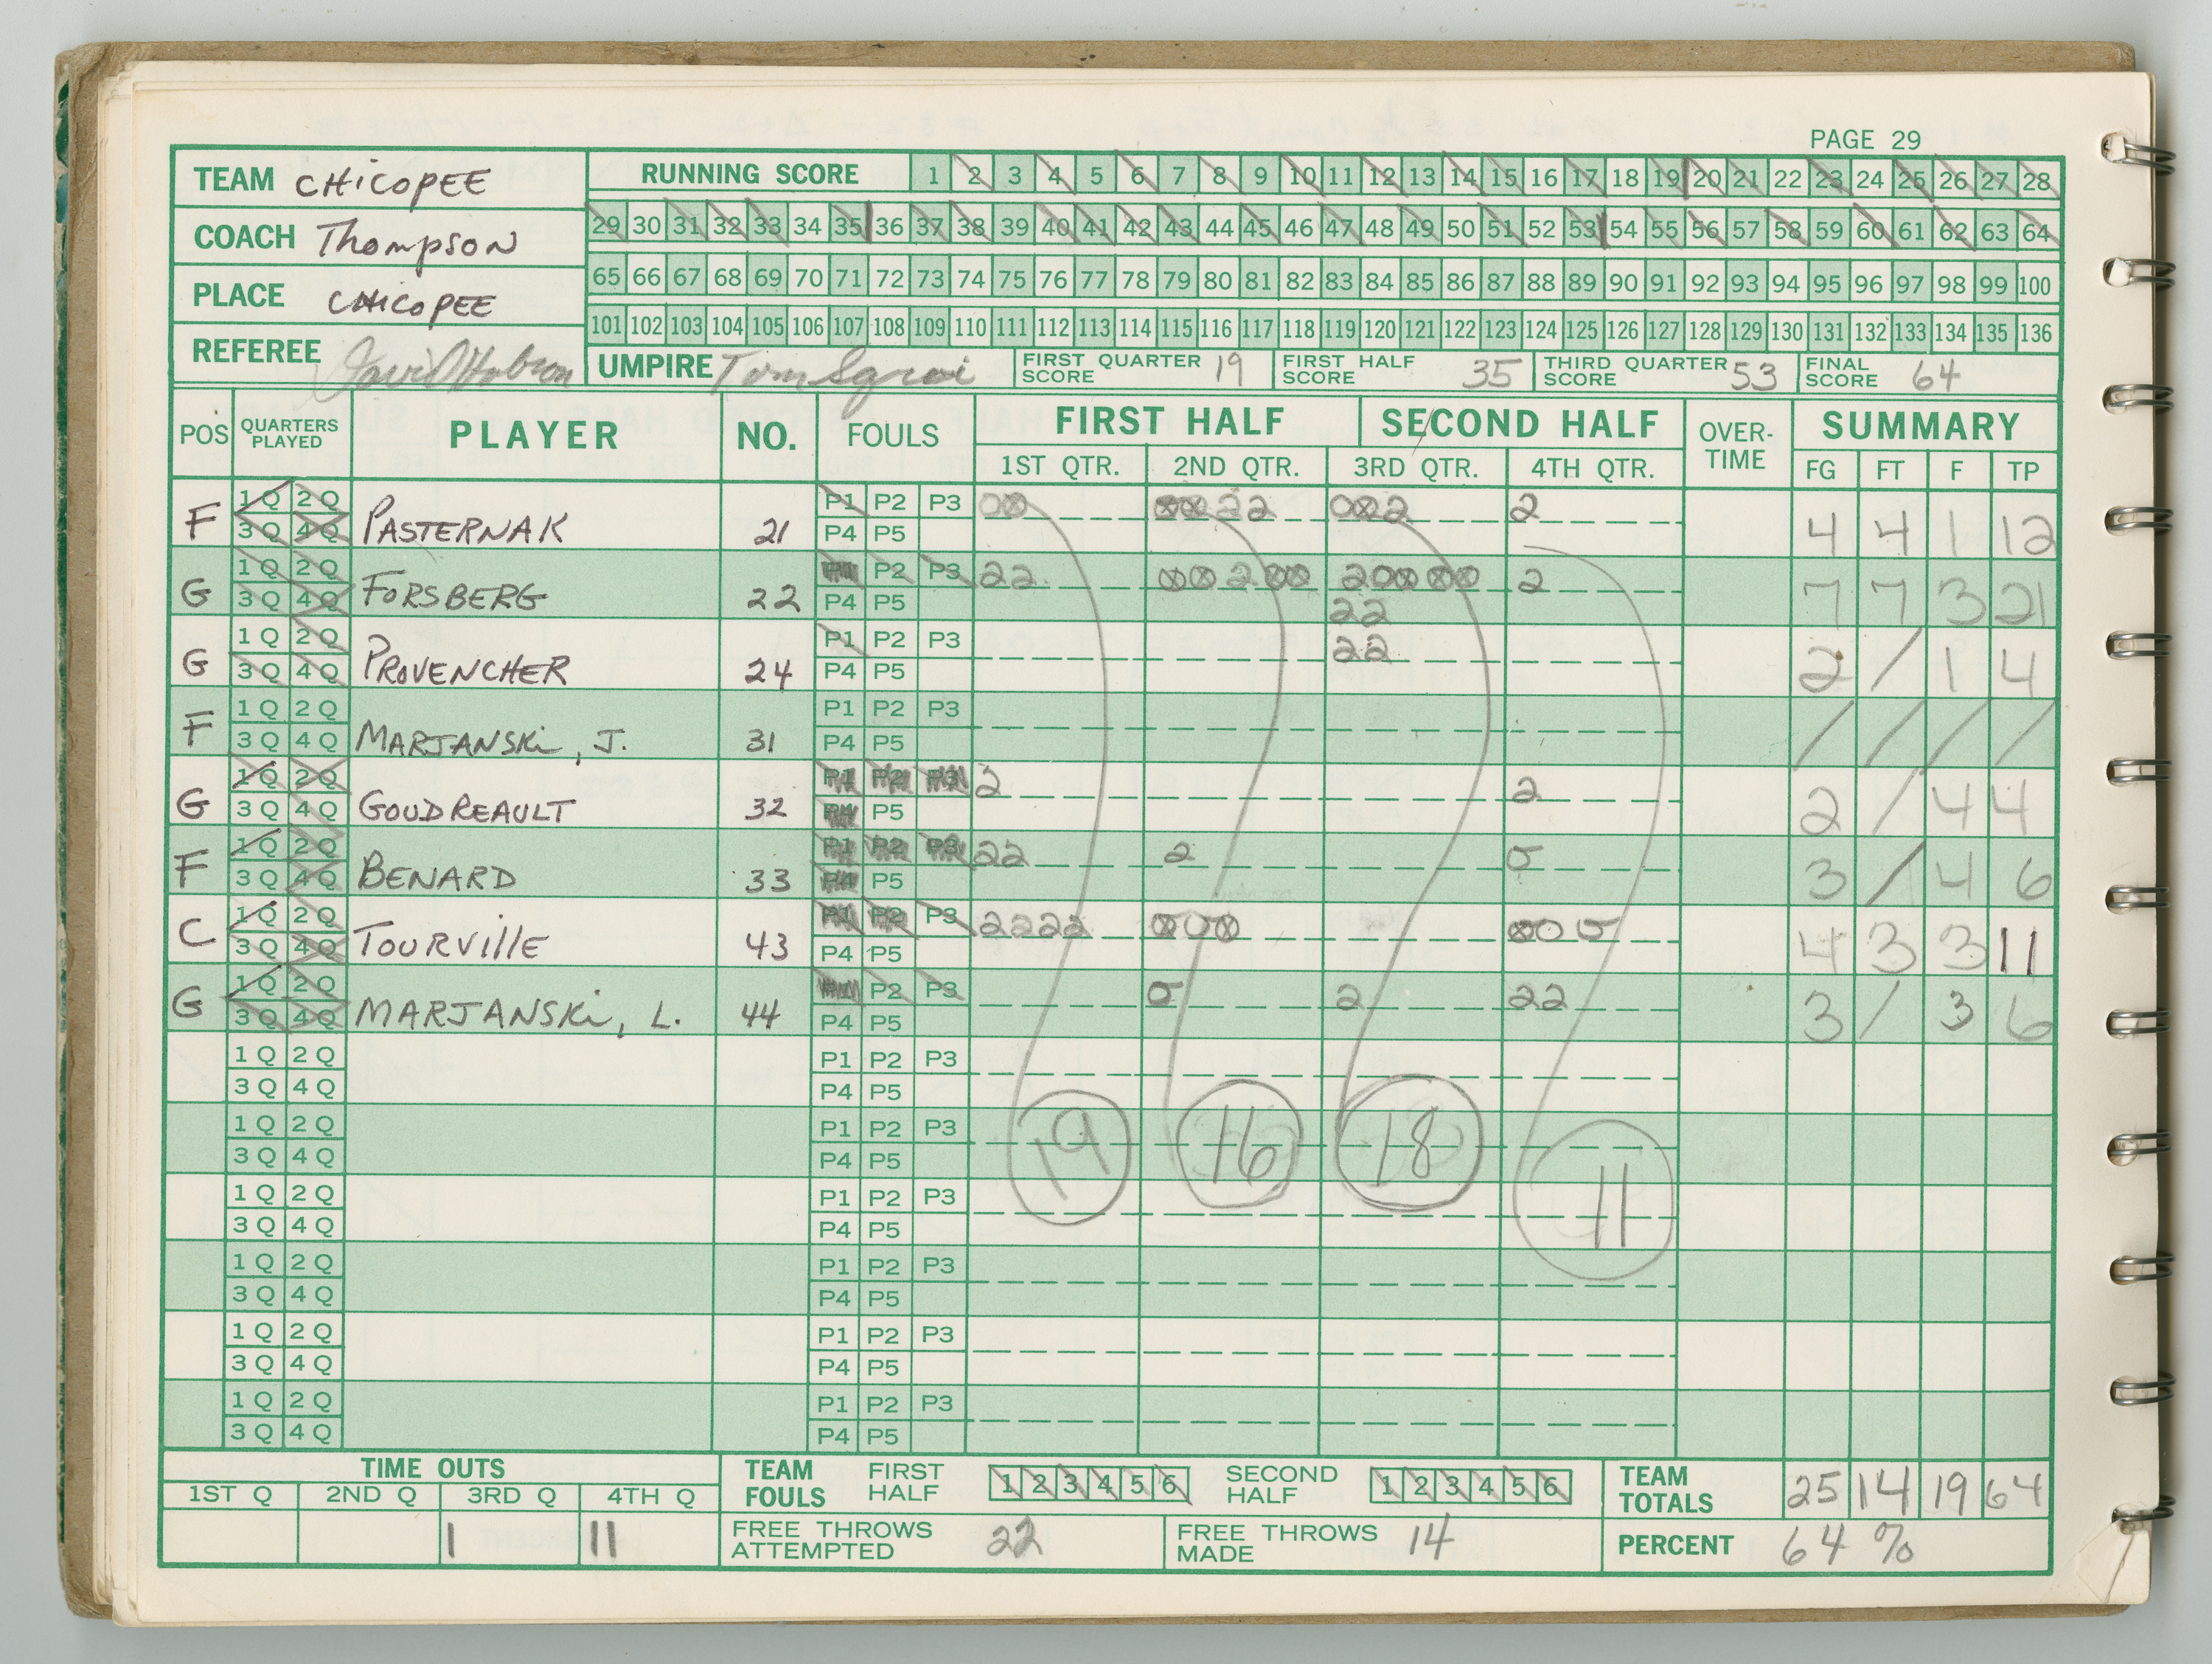 PAGE 29
TEAM CHICOPEE
RUNNING SCORE 1 2 3 4 5 6 7 8 9 10 11 12 13 14 15 16 17 18 19 20 21 22 23 24 25 26 27 28
COACH Thompson
29 30 31 32 33 34 35 36 37 38 39 40 41 42 43 44 45 46 47 48 49 50 51 52 53 54 55 56 57 58 59 60 61 62 63 64
PLACE CHICOPEE
65 66 67 68 69 70 71 72 73 74 75 76 77 78 79 80 81 82 83 84 85 86 87 88 89 90 91 92 93 94 95 96 97 98 99 100
101 102 103 104 105 106 107 108 109 110 111 112 113 114 115 116 117 118 119 120 121 122 123 124 125 126 127 128 129 130 131 132 133 134 135 136
REFEREE David
UMPIRE Tom
FIRST QUARTER SCORE 19
FIRST HALF SCORE 35
THIRD QUARTER SCORE 53
FINAL SCORE 64
POS QUARTERS PLAYED PLAYER NO. FOULS FIRST HALF SECOND HALF OVER-TIME SUMMARY
1ST QTR. 2ND QTR. 3RD QTR. 4TH QTR. FG FT F TP
F 1 Q 2 Q 3 Q 4 Q PASTERNAK 21 P1 P2 P3 P4 P5 22 2 2 4 4 1 12
G 1 Q 2 Q 3 Q 4 Q FORSBERG 22 P2 P3 P4 P5 22 2 2 22 2 7 7 3 21
G 1 Q 2 Q 3 Q 4 Q PROVENCHER 24 P1 P2 P3 P4 P5 22 2 / 1 4
F 1 Q 2 Q 3 Q 4 Q MARJANSKI, J. 31 P1 P2 P3 P4 P5 / / / /
G 1 Q 2 Q 3 Q 4 Q GOUDREAULT 32 P1 P2 P3 P4 P5 2 2 2 / 4 4
F 1 Q 2 Q 3 Q 4 Q BENARD 33 P1 P2 P3 P4 P5 22 2 3 / 4 6
C 1 Q 2 Q 3 Q 4 Q TOURVILLE 43 P1 P2 P3 P4 P5 2222 4 3 3 11
G 1 Q 2 Q 3 Q 4 Q MARJANSKI, L. 44 P2 P3 P4 P5 2 22 3 / 3 6
1 Q 2 Q P1 P2 P3
3 Q 4 Q P4 P5
1 Q 2 Q P1 P2 P3
3 Q 4 Q P4 P5
19 16 18 11
1 Q 2 Q P1 P2 P3
3 Q 4 Q P4 P5
1 Q 2 Q P1 P2 P3
3 Q 4 Q P4 P5
1 Q 2 Q P1 P2 P3
3 Q 4 Q P4 P5
1 Q 2 Q P1 P2 P3
3 Q 4 Q P4 P5
TIME OUTS
1ST Q 2ND Q 3RD Q 4TH Q
1 11
TEAM FOULS FIRST HALF 1 2 3 4 5 6 SECOND HALF 1 2 3 4 5 6
TEAM TOTALS 25 14 19 64
FREE THROWS ATTEMPTED 22
FREE THROWS MADE 14
PERCENT 64 %